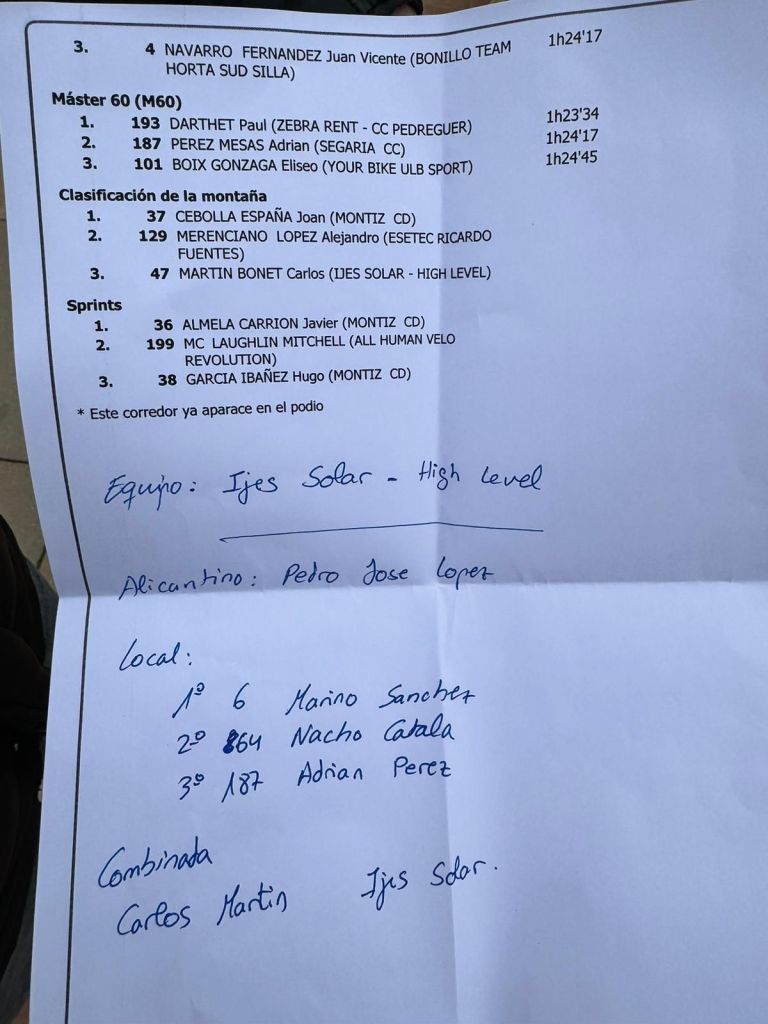 3. 4 NAVARRO FERNANDEZ Juan Vicente (BONILLO TEAM 1h24'17
HORTA SUD SILLA)
Máster 60 (M60)
1. 193 DARTHET Paul (ZEBRA RENT - CC PEDREGUER) 1h23'34
2. 187 PEREZ MESAS Adrian (SEGARIA CC) 1h24'17
3. 101 BOIX GONZAGA Eliseo (YOUR BIKE ULB SPORT) 1h24'45
Clasificación de la montaña
1. 37 CEBOLLA ESPAÑA Joan (MONTIZ CD)
2. 129 MERENCIANO LOPEZ Alejandro (ESETEC RICARDO
FUENTES)
3. 47 MARTIN BONET Carlos (IJES SOLAR - HIGH LEVEL)
Sprints
1. 36 ALMELA CARRION Javier (MONTIZ CD)
2. 199 MC LAUGHLIN MITCHELL (ALL HUMAN VELO
REVOLUTION)
3. 38 GARCIA IBAÑEZ Hugo (MONTIZ CD)
* Este corredor ya aparace en el podio
Equipo: Ijes Solar - High Level
Alicantino: Pedro Jose Lopez
Local:
1º 6 Marino Sanchez
2º 64 Nacho Catala
3º 187 Adrian Perez
Combinada
Carlos Martin Ijes Solar.